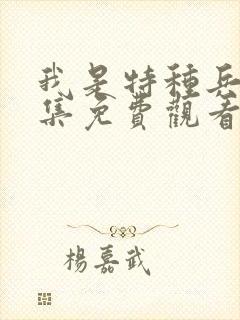 我是特種兵
集免費觀看
楊嘉武